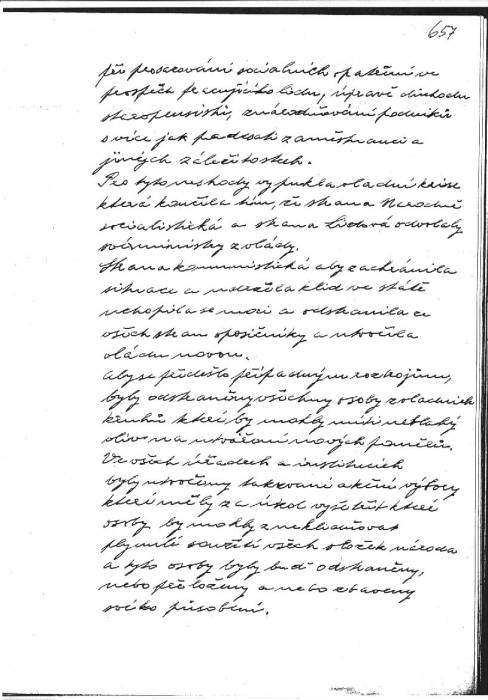 657
při prosazování sociálních opatření ve
prospěch pracujícího lidu, úpravě důchodu
staropensistů, znárodňování podniků
s více jak padesáti zaměstnanci a
jiných záležitostech.
Pro tyto neshody vypukla vládní krise
která končila tím, že strana Národně
socialistická a strana Lidová odvolaly
své ministry z vlády.
Strana komunistická aby zachránila
situaci a udržela klid ve státě
uchopila se moci a odstranila ze
všech stran oposičníky a utvořila
vládu novou.
Aby se předešlo případným rozbrojům,
byly odstraněny všechny osoby z vladních
kruhů které by mohly míti neblahý
vliv na utváření nových poměrů.
Ve všech úřadech a institucích
byly utvořeny takzvané akční výbory
které měly za úkol vyšetřit které
osoby by mohly zneklidňovat
plynulé soužití všech složek národa
a tyto osoby byly buď odstraněny,
nebo přeloženy a nebo zbaveny
svého působení.